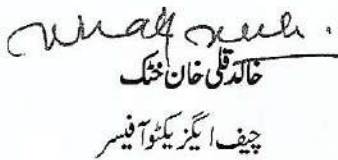 خالد قلی خان خٹک
چیف ایگزیکٹو آفیسر